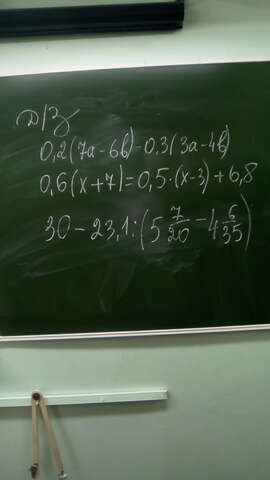 Д/З
0,2(7a-6b)-0,3(3a-4b)
0,6(x+7)=0,5·(x-3)+6,8
30-23,1:(5 7/20 - 4 6/35)